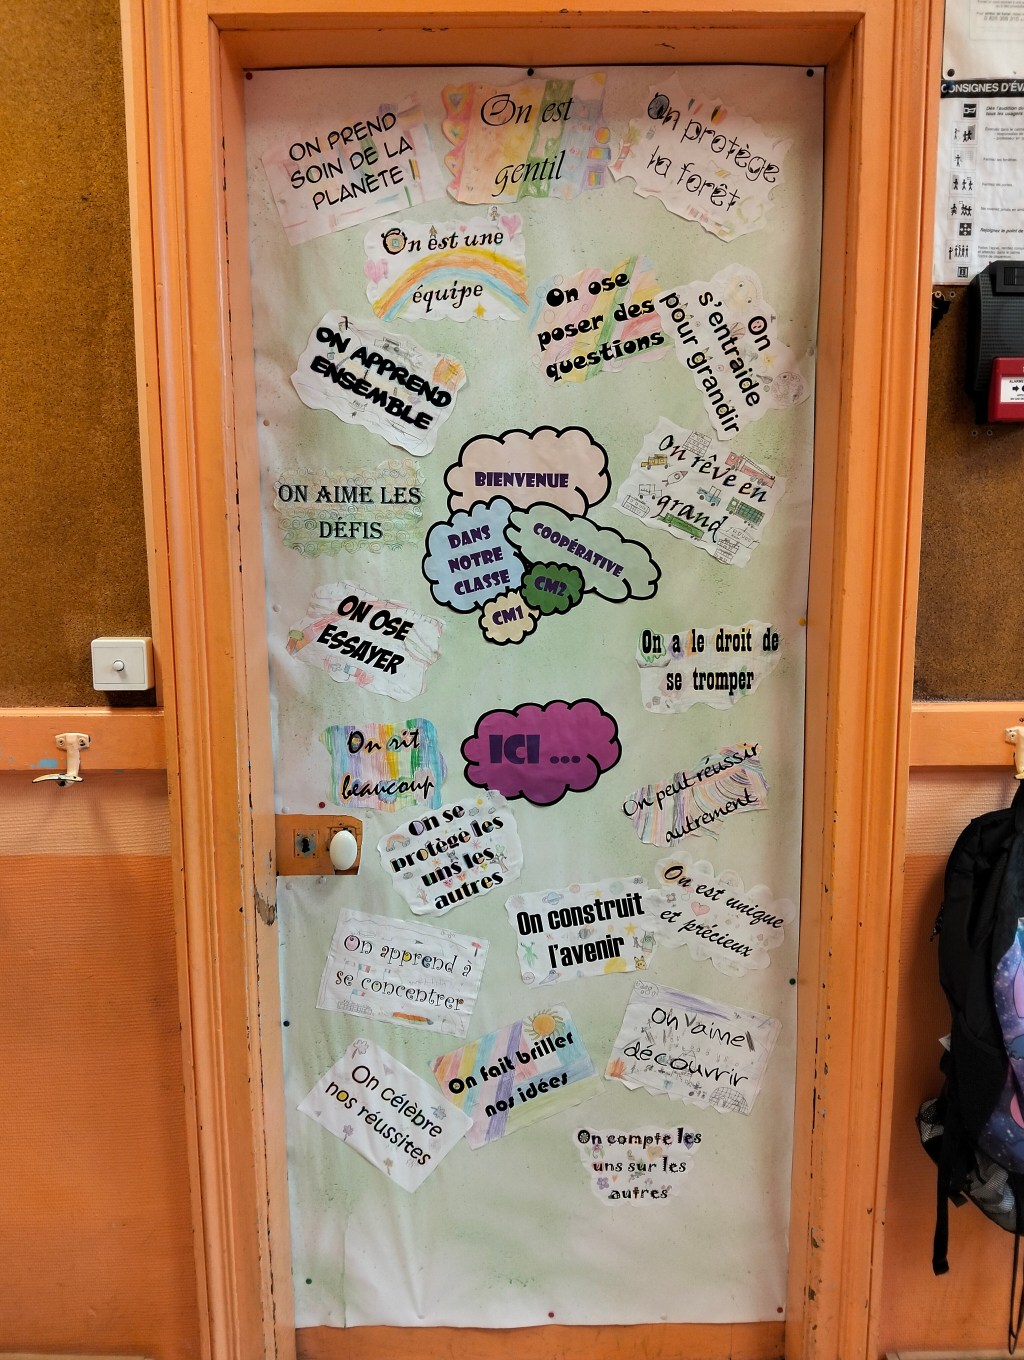 ON PREND
SOIN DE LA
PLANÈTE !
On est
gentil
On protège
la forêt
On est une
équipe
On ose
poser des
questions
On
s'entraide
pour grandir
ON APPREND
ENSEMBLE
BIENVENUE
DANS
NOTRE
CLASSE
COOPÉRATIVE
CM2
CM1
On rêve en
grand
ON AIME LES
DÉFIS
ON OSE
ESSAYER
On a le droit de
se tromper
ICI ...
On rit
beaucoup
On peut réussir
autrement
On se
protège les
uns les
autres
On est unique
et précieux
On construit
l'avenir
On apprend à
se concentrer
On aime
découvrir
On fait briller
nos idées
On célèbre
nos réussites
On compte les
uns sur les
autres